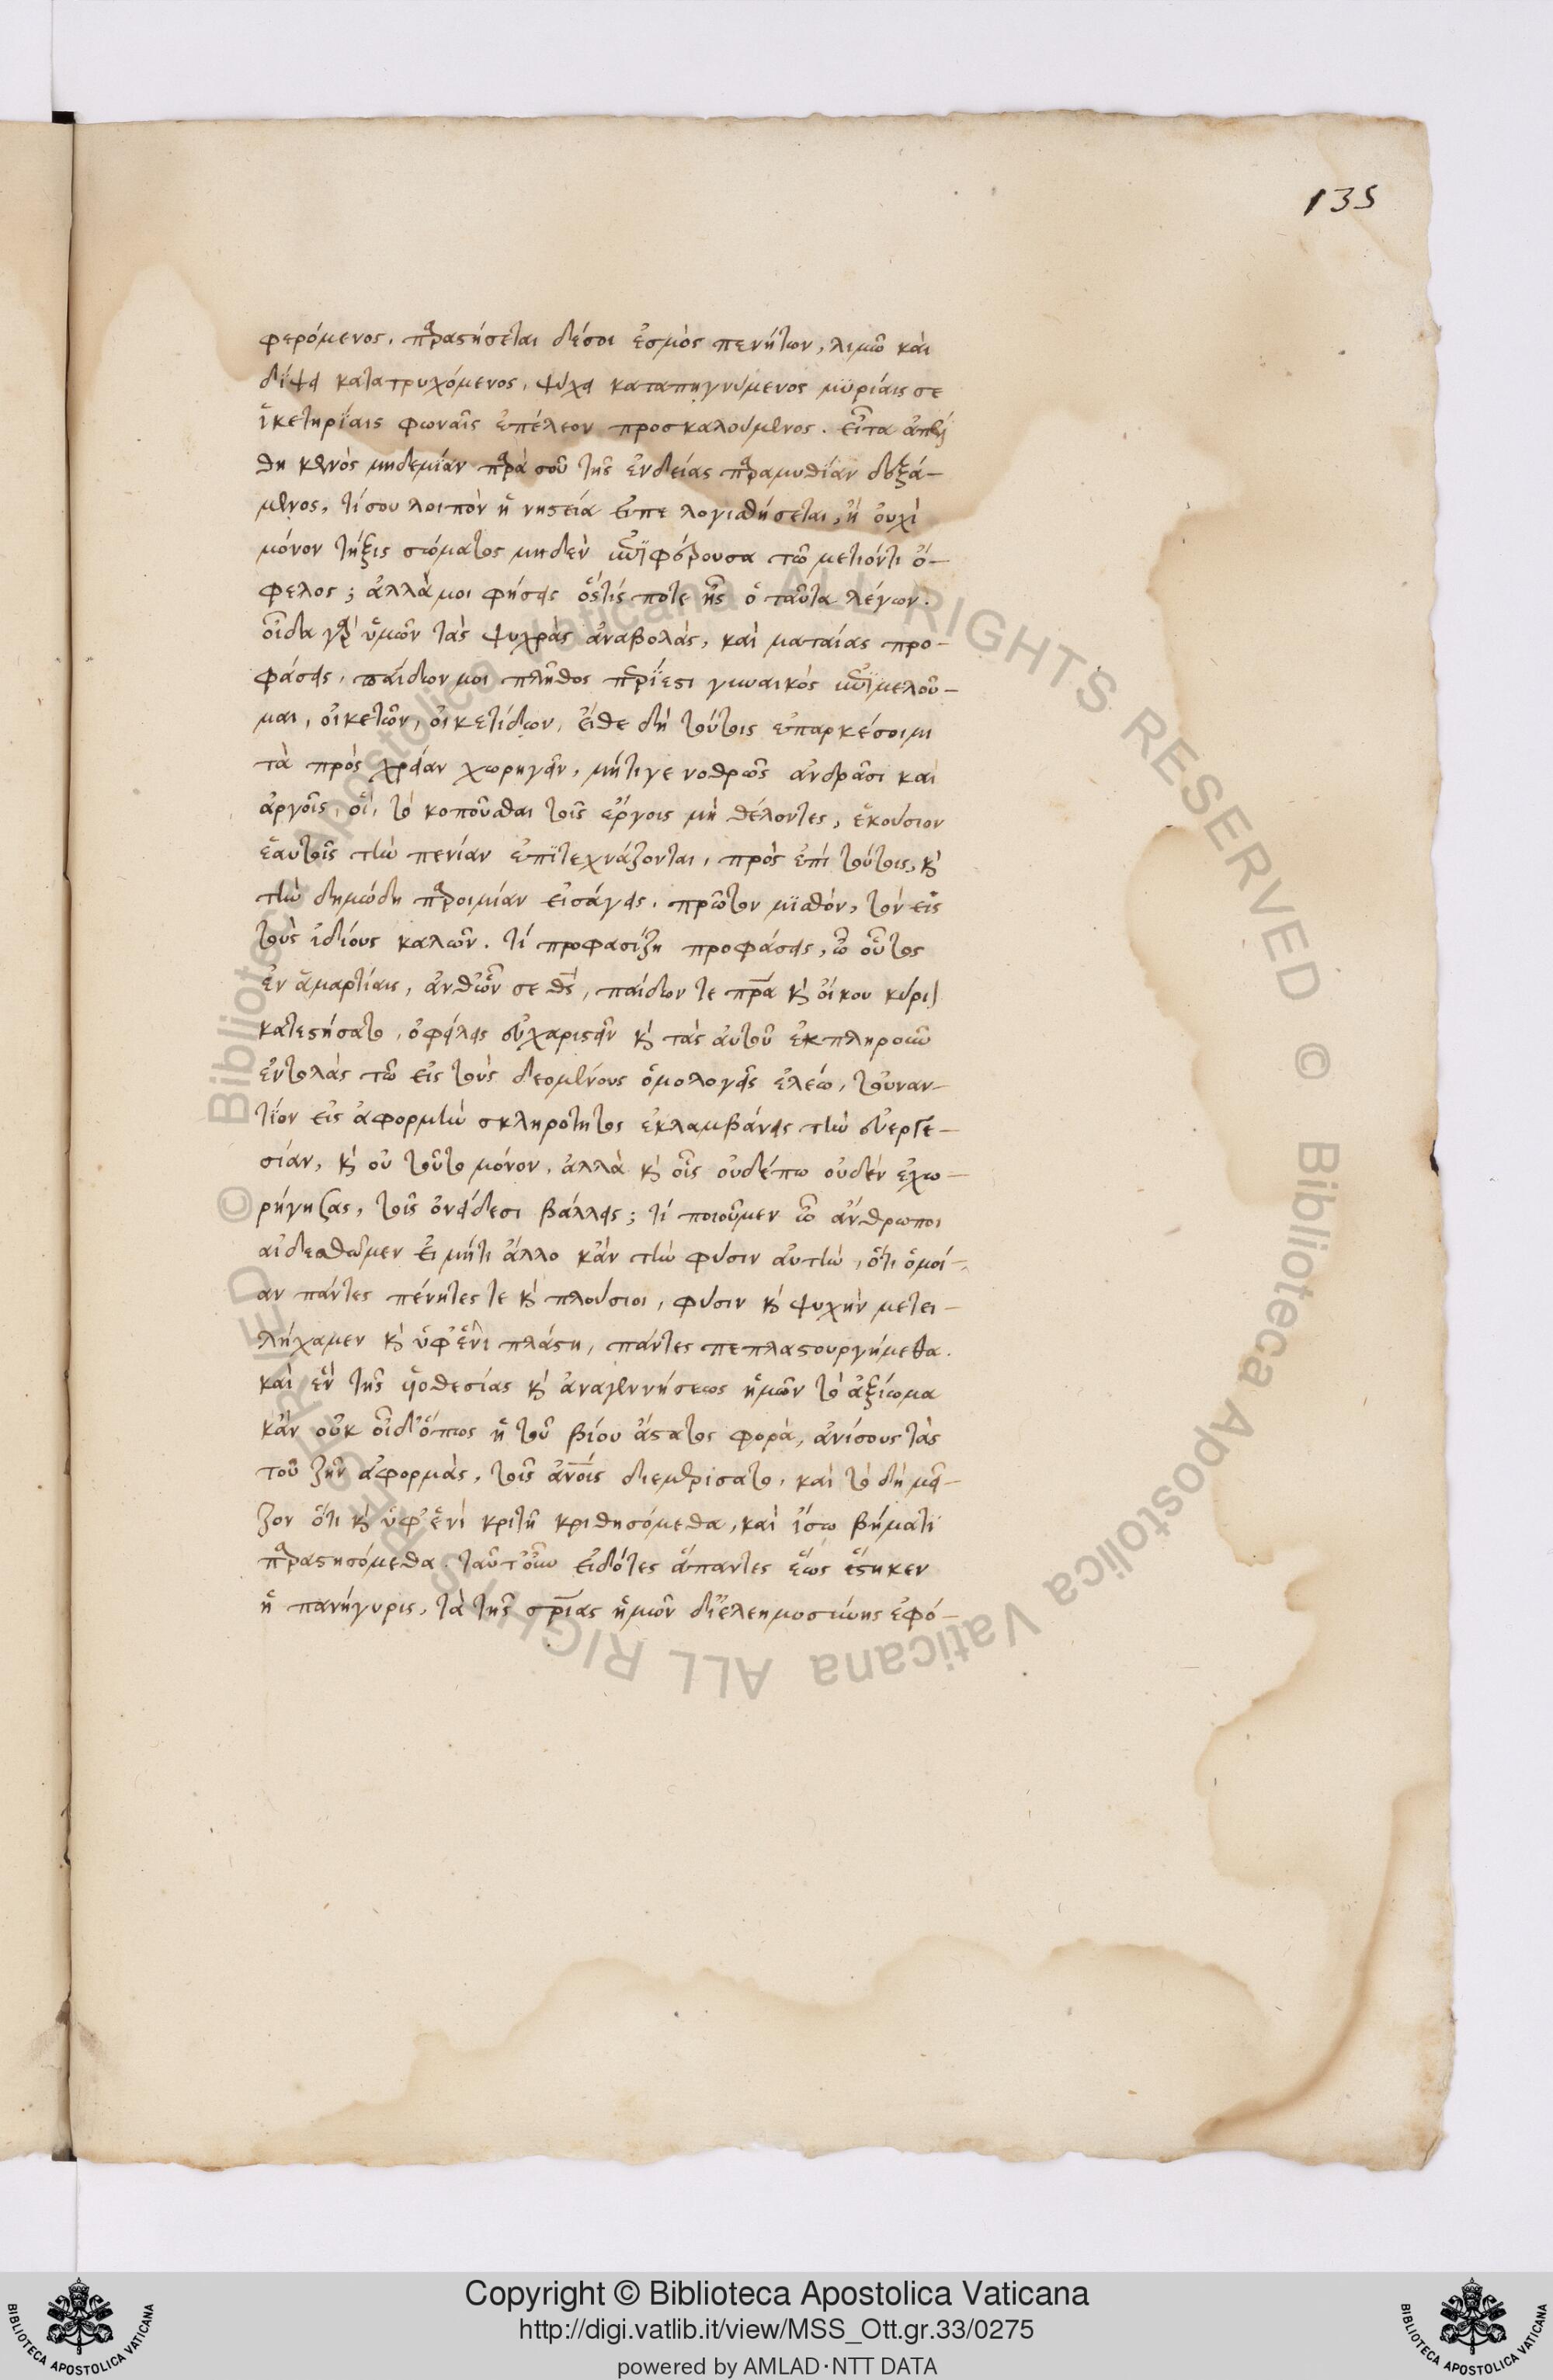 135
φερόμενος. παραστήσεται δέ σοι ἑσμὸς πενήτων, λιμῶ καὶ
δίψει κατατρυχόμενος, ψύχει καταπηγνύμενος μυρίαις σε
ἱκετηρίαις φωναῖς ἐπ' ἔλεον προσκαλούμενος. εἶτα ἀπελή
θη κενὸς μηδεμίαν παρὰ σοῦ τῆς ἐνδείας παραμυθίαν δεξά-
μενος, τί σου λοιπὸν ἡ νηστεία εἰπὲ λογισθήσεται, ἢ οὐχὶ
μόνον τῆξις σώματος μηδὲν ἐπιφέρουσα τῶ μετιόντι ὄ-
φελος; ἀλλά μοι φήσεις ὅστις ποτε ἧς ὁ ταῦτα λέγων.
οἶδα γὰρ ὑμῶν τὰς ψυχρὰς ἀναβολὰς, καὶ ματαίας προ-
φάσεις, παίδων μοι πλῆθος περίεστι γυναικὸς ἐπιμελοῦ-
μαι, οἰκετῶν, οἰκετίδων, εἴθε δὴ τούτοις ἐπαρκέσοιμι
τὰ πρὸς χρείαν χωρηγεῖν, μήτιγε νοθρῶς ἀνδρᾶσι καὶ
ἀργοῖς, οἳ, τὸ κοποῦσθαι τοῖς ἔργοις μὴ θέλοντες, ἑκούσιον
ἑαυτοῖς τὴν πενίαν ἐπιτεχνάζονται, πρὸς ἐπὶ τούτοις, καὶ
τὴν δημώδη παροιμίαν εἰσάγεις, πρῶτον μισθὸν, τὸν εἰς
τοὺς ἰδίους καλῶν. τί προφασίζη προφάσεις, ὦ οὗτος
ἐν ἁμαρτίαις, ἀνθ' ὧν σε θς, παίδων τε πρα καὶ οἴκου κύριον
κατεστήσατο, ὀφείλεις εὐχαριστεῖν καὶ τὰς αὐτοῦ ἐκπληροῦν
ἐντολὰς τῶ εἰς τοὺς δεομένους ὁμολογεῖς ἐλέω, τοὐναν-
τίον εἰς ἀφορμὴν σκληρότητος ἐκλαμβάνεις τὴν εὐεργε-
σίαν, καὶ οὐ τοῦτο μόνον, ἀλλὰ καὶ οἷς οὐδέπω οὐδὲν ἐχω-
ρήγησας, τοῖς ὀνείδεσι βάλλεις; τί ποιοῦμεν ὦ ἄνθρωποι
αἰδεσθῶμεν εἰ μήτι ἄλλο κἂν τὴν φύσιν αὐτὴν, ὅτι ὁμοί-
αν πάντες πένητες τε καὶ πλούσιοι, φύσιν καὶ ψυχὴν μετει-
λήχαμεν καὶ ὑφ' ἑνὶ πλάστη, πάντες πεπλαστουργήμεθα.
καὶ ἓν τῆς υἱοθεσίας καὶ ἀναγεννήσεως ἡμῶν τὸ ἀξίωμα
κἂν οὐκ οἶδ' ὅπως ἡ τοῦ βίου ἄστατος φορὰ, ἀνίσους τὰς
τοῦ ζῆν ἀφορμὰς, τοῖς ανοις διεμερίσατο, καὶ τὸ δὴ μεῖ-
ζον ὅτι καὶ ὑφ' ἑνὶ κριτῆ κριθησόμεθα, καὶ ἴσω βήματι
παραστησόμεθα. ταῦτ' οὖν εἰδότες ἅπαντες ἕως ἕστηκεν
ἡ πανήγυρις, τὰ τῆς σριας ἡμῶν δι' ἐλεημοσύνης ἐφό-
© Biblioteca Apostolica Vaticana ALL RIGHTS RESERVED © Biblioteca Apostolica Vaticana ALL RIGHTS RESERVED
Copyright © Biblioteca Apostolica Vaticana
http://digi.vatlib.it/view/MSS_Ott.gr.33/0275
powered by AMLAD·NTT DATA
BIBLIOTECA APOSTOLICA VATICANA
BIBLIOTECA APOSTOLICA VATICANA